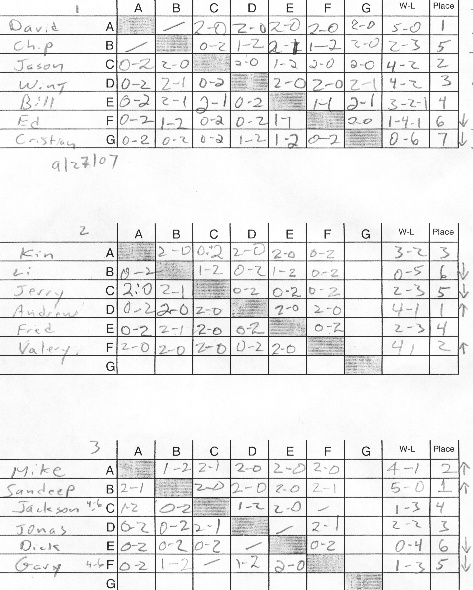 1 A B C D E F G W-L Place
David A / 2-0 2-0 2-0 2-0 2-0 5-0 1
Chip B / 0-2 1-2 1-2 2-0 2-3 5
Jason C 0-2 2-0 2-0 1-2 2-0 2-0 4-2 2
D 0-2 2-1 0-2 2-0 2-0 2-1 4-2 3
Bill E 0-2 2-1 2-1 0-2 1-1 2-1 3-2-1 4
Ed F 0-2 1-2 0-2 0-2 1-1 2-0 1-4-1 6 ↓
Cristian G 0-2 0-2 0-2 1-2 1-2 0-2 0-6 7 ↓
9/27/07
2 A B C D E F G W-L Place
Kin A 2-0 0-2 2-0 2-0 0-2 3-2 3
Li B 0-2 1-2 0-2 1-2 0-2 0-5 6 ↓
Jerry C 2-0 2-1 0-2 0-2 0-2 2-3 5 ↓
Andrew D 0-2 2-0 2-0 2-0 2-0 4-1 1 ↑
Fred E 0-2 2-1 2-0 0-2 0-2 2-3 4
Valery F 2-0 2-0 2-0 0-2 2-0 4, 2 ↑
G
3 A B C D E F G W-L Place
Mike A 1-2 2-1 2-0 2-0 2-0 4-1 2 ↑
Sandeep B 2-1 2-0 2-0 2-0 2-1 5-0 1 ↑
Jackson 4-6 C 1-2 0-2 1-2 2-0 - 1-3 4
Jonas D 0-2 0-2 2-1 / 2-1 2-2 3
Dick E 0-2 0-2 0-2 / 0-2 0-4 6 ↓
Gary 4-6 F 0-2 1-2 / 1-2 2-0 1-3 5 ↓
G